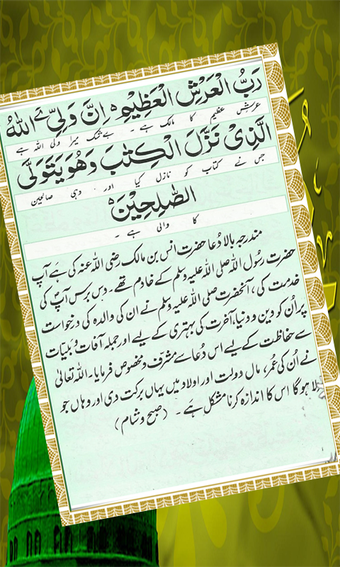 رَبُّ الْعَرْشِ الْعَظِیْمِ ۝ اِنَّ وَلِیِّ ےَ اللّٰهُ
عرش عظیم کا مالک ہے ۔ بے شک میرا ولی اللہ ہے
الَّذِیْ نَزَّلَ الْکِتٰبَ وَهُوَ یَتَوَلَّی
جس نے کتاب کو نازل کیا اور وہی صالحین
الصّٰلِحِیْنَ ۝
کا والی ہے ۔
مندرجہ بالا دُعا حضرت انس بن مالک رضی اللہ عنہ کی ہے آپ
حضرت رسُول اللہ صلی اللہ علیہ وسلم کے خادم تھے ۔ دس برس آپؐ کی
خدمت کی ، آنحضرت صلی اللہ علیہ وسلم نے ان کی والدہ کی درخواست
پر اُن کو دین و دنیا، آخرت کی بہتری کے لیے اور جملہ آفات و بلیّات
سے حفاظت کے لیے اس دُعا سے مشرف و مخصوص فرمایا۔ اللہ تعالیٰ
نے اُن کی عُمر، مال دولت اور اولاد میں یہاں برکت دی اور وہاں جو
لا ہوگا اس کا اندازہ کرنا مشکل ہے ۔ (صبح و شام)